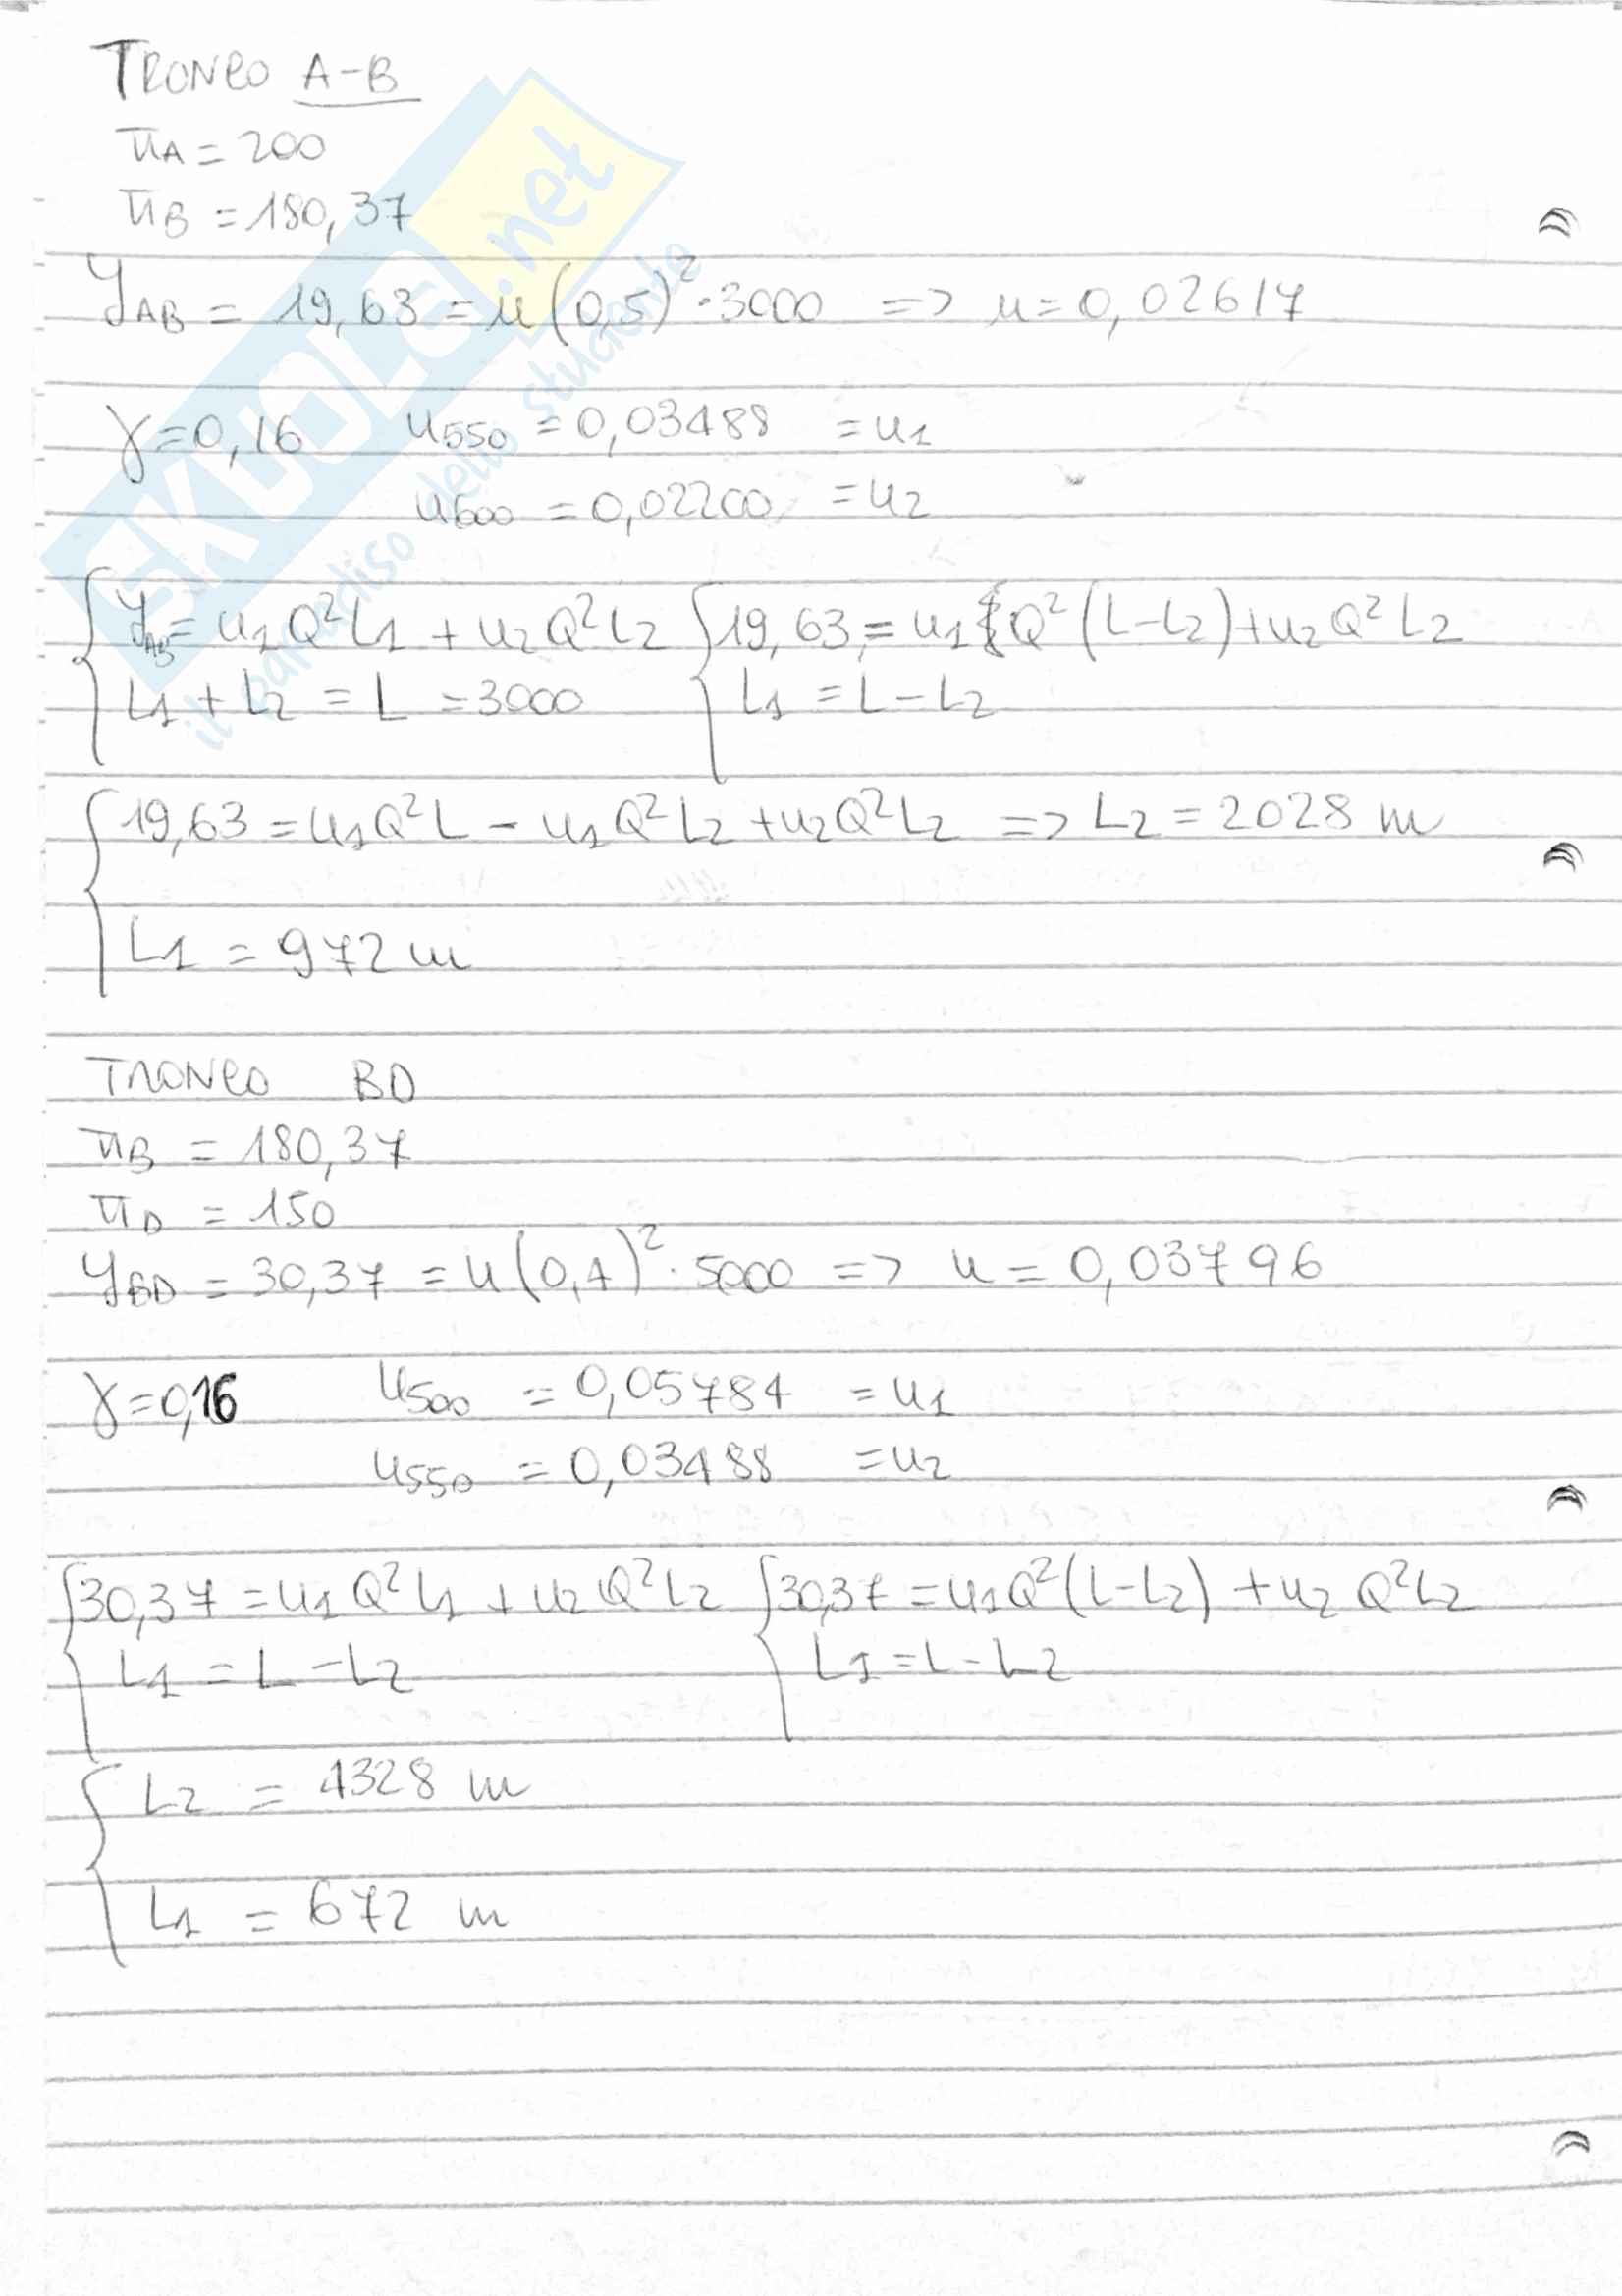 TRONCO A-B
πA = 200
πB = 180,37
YAB = 19,63 = u(0,5)²·3000 => u = 0,02617
γ = 0,16 u550 = 0,03488 = u1
u600 = 0,02200 = u2
{ YAB = u1Q²L1 + u2Q²L2 { 19,63 = u1Q²(L-L2) + u2Q²L2
L1 + L2 = L = 3000 L1 = L - L2
{ 19,63 = u1Q²L - u1Q²L2 + u2Q²L2 => L2 = 2028 m
L1 = 972 m
TRONCO BD
πB = 180,37
πD = 150
YBD = 30,37 = u(0,4)²·5000 => u = 0,03796
γ = 0,16 u500 = 0,05784 = u1
u550 = 0,03488 = u2
{ 30,37 = u1Q²L1 + u2Q²L2 { 30,37 = u1Q²(L-L2) + u2Q²L2
L1 = L - L2 L1 = L - L2
{ L2 = 4328 m
L1 = 672 m
SKUOLA.net
il paradiso dello studente